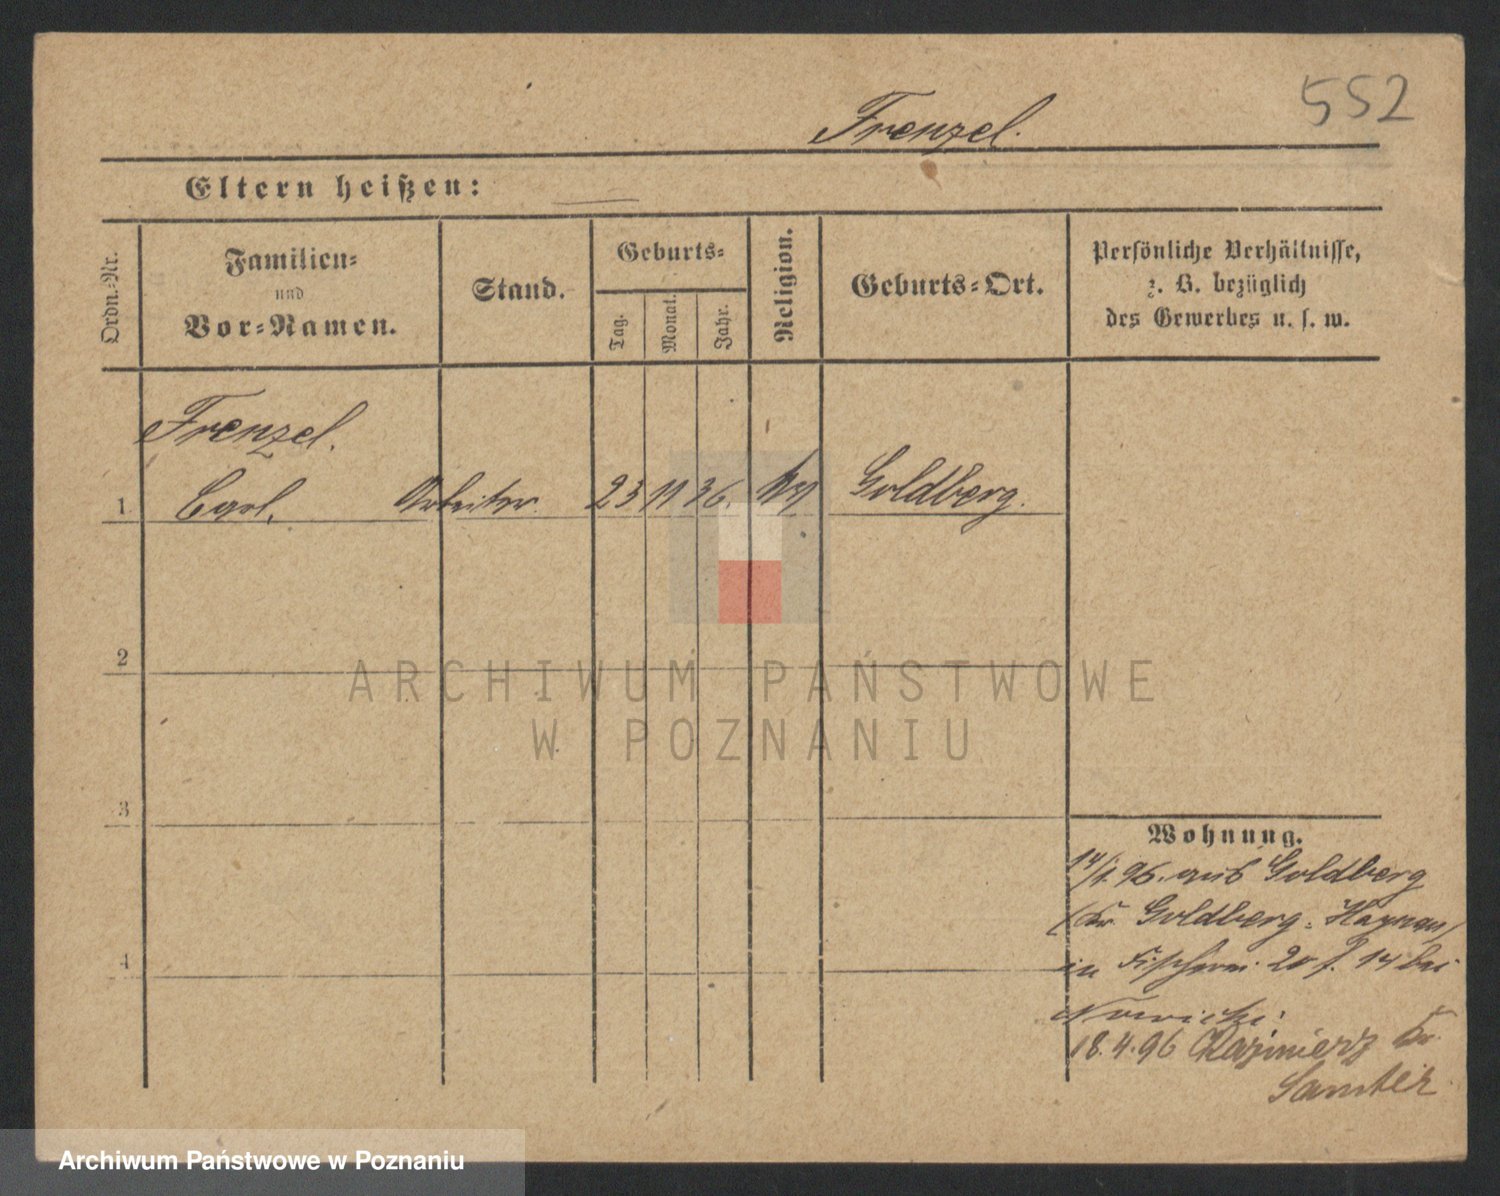 552
Frenzel.
Eltern heißen:
Ordn.-Nr.
Familien-
und
Vor-Namen.
Stand.
Geburts-
Tag.
Monat.
Jahr.
Religion.
Geburts-Ort.
Persönliche Verhältnisse,
z. B. bezüglich
des Gewerbes u. s. w.
Frenzel.
1 Carl. Arbeiter. 23 11 36. Goldberg.
2
3
4
Wohnung.
14/1. 96. aus Goldberg
(Kr. Goldberg-Haynau)
in Fischerei 20 b. 14 bei
Nowicki.
18.4.96 Kazmierz Kr.
Samter
ARCHIWUM PAŃSTWOWE
W POZNANIU
Archiwum Państwowe w Poznaniu